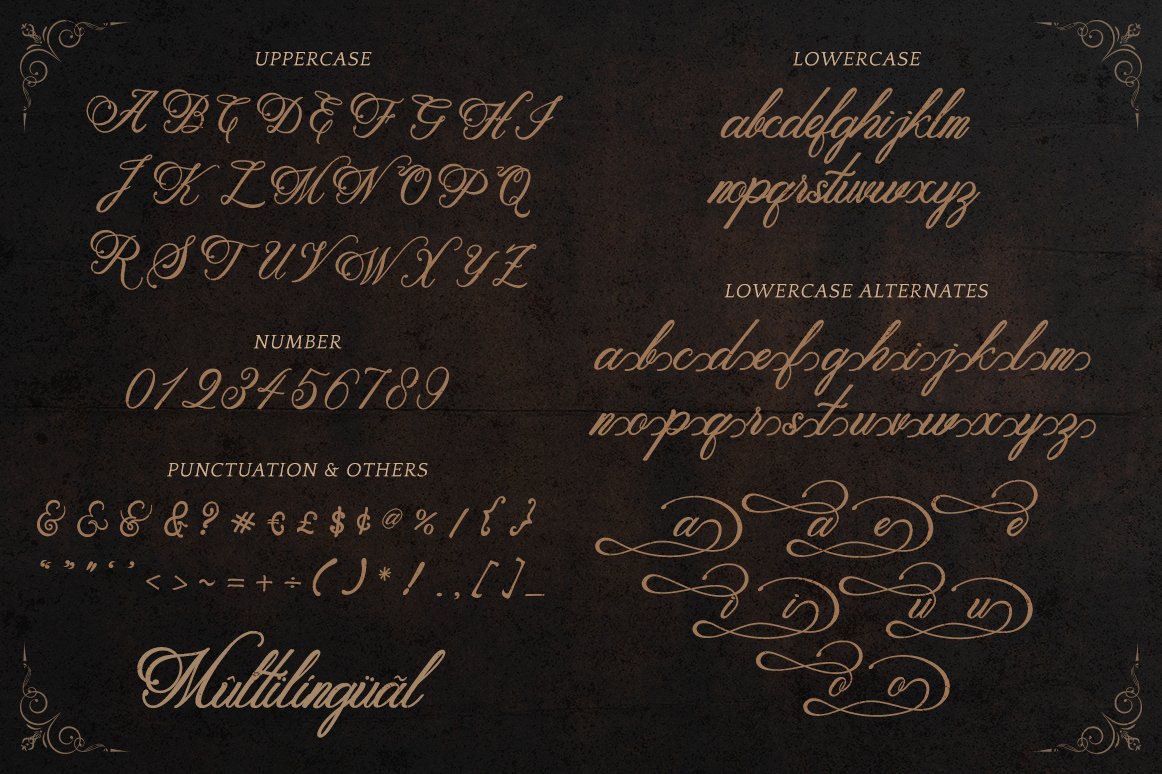 UPPERCASE
A B C D E F G H I
J K L M N O P Q
R S T U V W X Y Z
NUMBER
0 1 2 3 4 5 6 7 8 9
PUNCTUATION & OTHERS
& & & & ? # € £ $ ¢ @ % / { }
“ ” " ‘ ’ < > ~ = + ÷ ( ) * ! . , [ ] _
Mûltïlíngüãl
LOWERCASE
abcdefghijklm
nopqrstuvwxyz
LOWERCASE ALTERNATES
a b c d e f g h i j k l m
n o p q r s t u v w x y z
a a e e
i i u u
o o